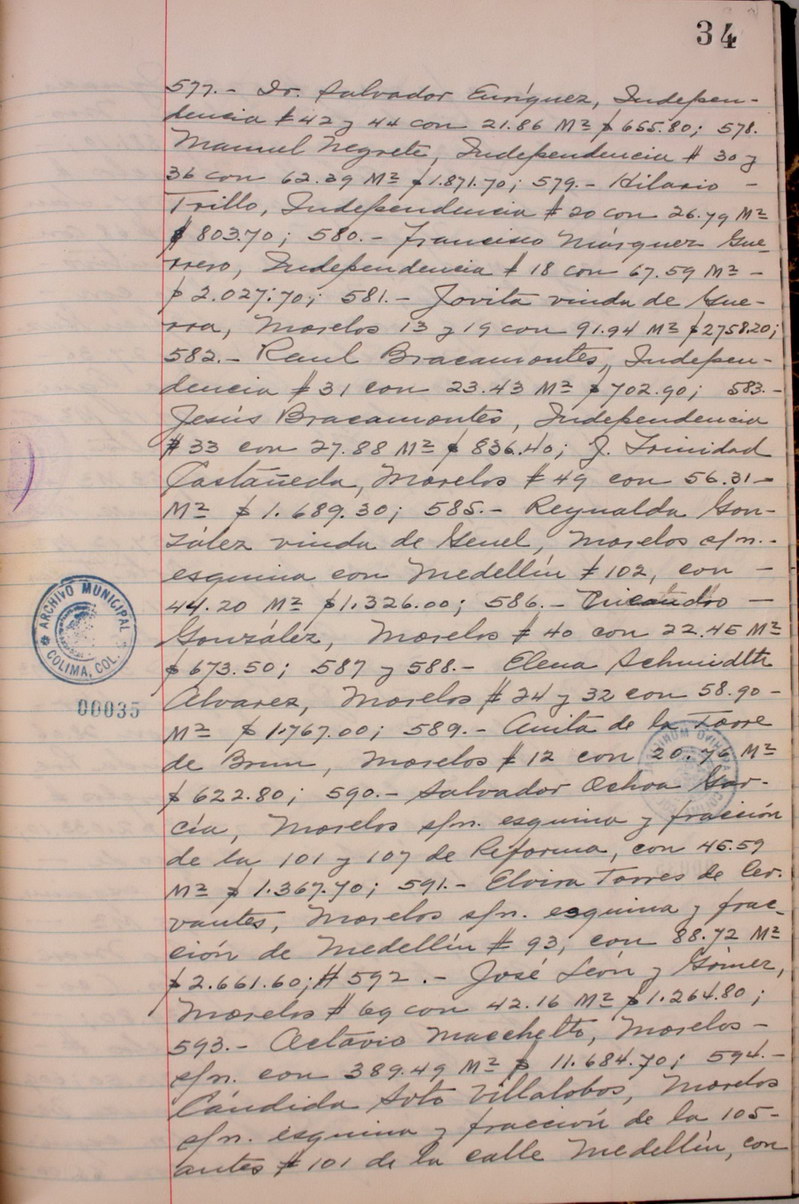 34
577.- Dr. Salvador Enríquez, Indepen-
dencia # 42 y 44 con 21.86 M² $ 655.80; 578.
Manuel Negrete, Independencia # 30 y
36 con 62.39 M² $1.871.70; 579.- Hilario -
Trillo, Independencia # 20 con 26.79 M²
$ 803.70; 580.- Francisco Márquez Gue-
rrero, Independencia # 18 con 67.59 M² -
$ 2.027.70; 581.- Jovita viuda de Gue-
rra, Morelos 13 y 19 con 91.94 M² $2758.20;
582.- Raul Bracamontes, Indepen-
dencia # 31 con 23.43 M² $ 702.90; 583.-
Jesús Bracamontes, Independencia
# 33 con 27.88 M² $ 836.40; J. Trinidad
Castañeda, Morelos # 49 con 56.31-
M² $ 1.689.30; 585.- Reynalda Gon-
zález viuda de Genel, Morelos s/n.-
esquina con Medellín # 102, con -
44.20 M² $1.326.00; 586.- -
González, Morelos # 40 con 22.45 M²
$ 673.50; 587 y 588.- Elena Schmidlth
Alvarez, Morelos # 24 y 32 con 58.90-
M² $ 1.767.00; 589.- Anita de la Torre
de Brun, Morelos # 12 con 20.76 M²
$ 622.80; 590.- Salvador Ochoa Gar-
cía, Morelos s/n. esquina y fracción
de la 101 y 107 de Reforma, con 45.59
M² $ 1.367.70; 591.- Elvira Torres de Cer-
vantes, Morelos s/n. esquina y frac-
ción de Medellín # 93, con 88.72 M²
$ 2.661.60; # 592.- José León y Gómez,
Morelos # 69 con 42.16 M² $1.264.80;
593.- Octavio Macchetto, Morelos -
s/n. con 389.49 M² $ 11.684.70; 594.-
Cándida Soto Villalobos, Morelos
s/n. esquina y fracción de la 105-
antes # 101 de la calle Medellín, con
ARCHIVO MUNICIPAL
COLIMA, COL.
00035